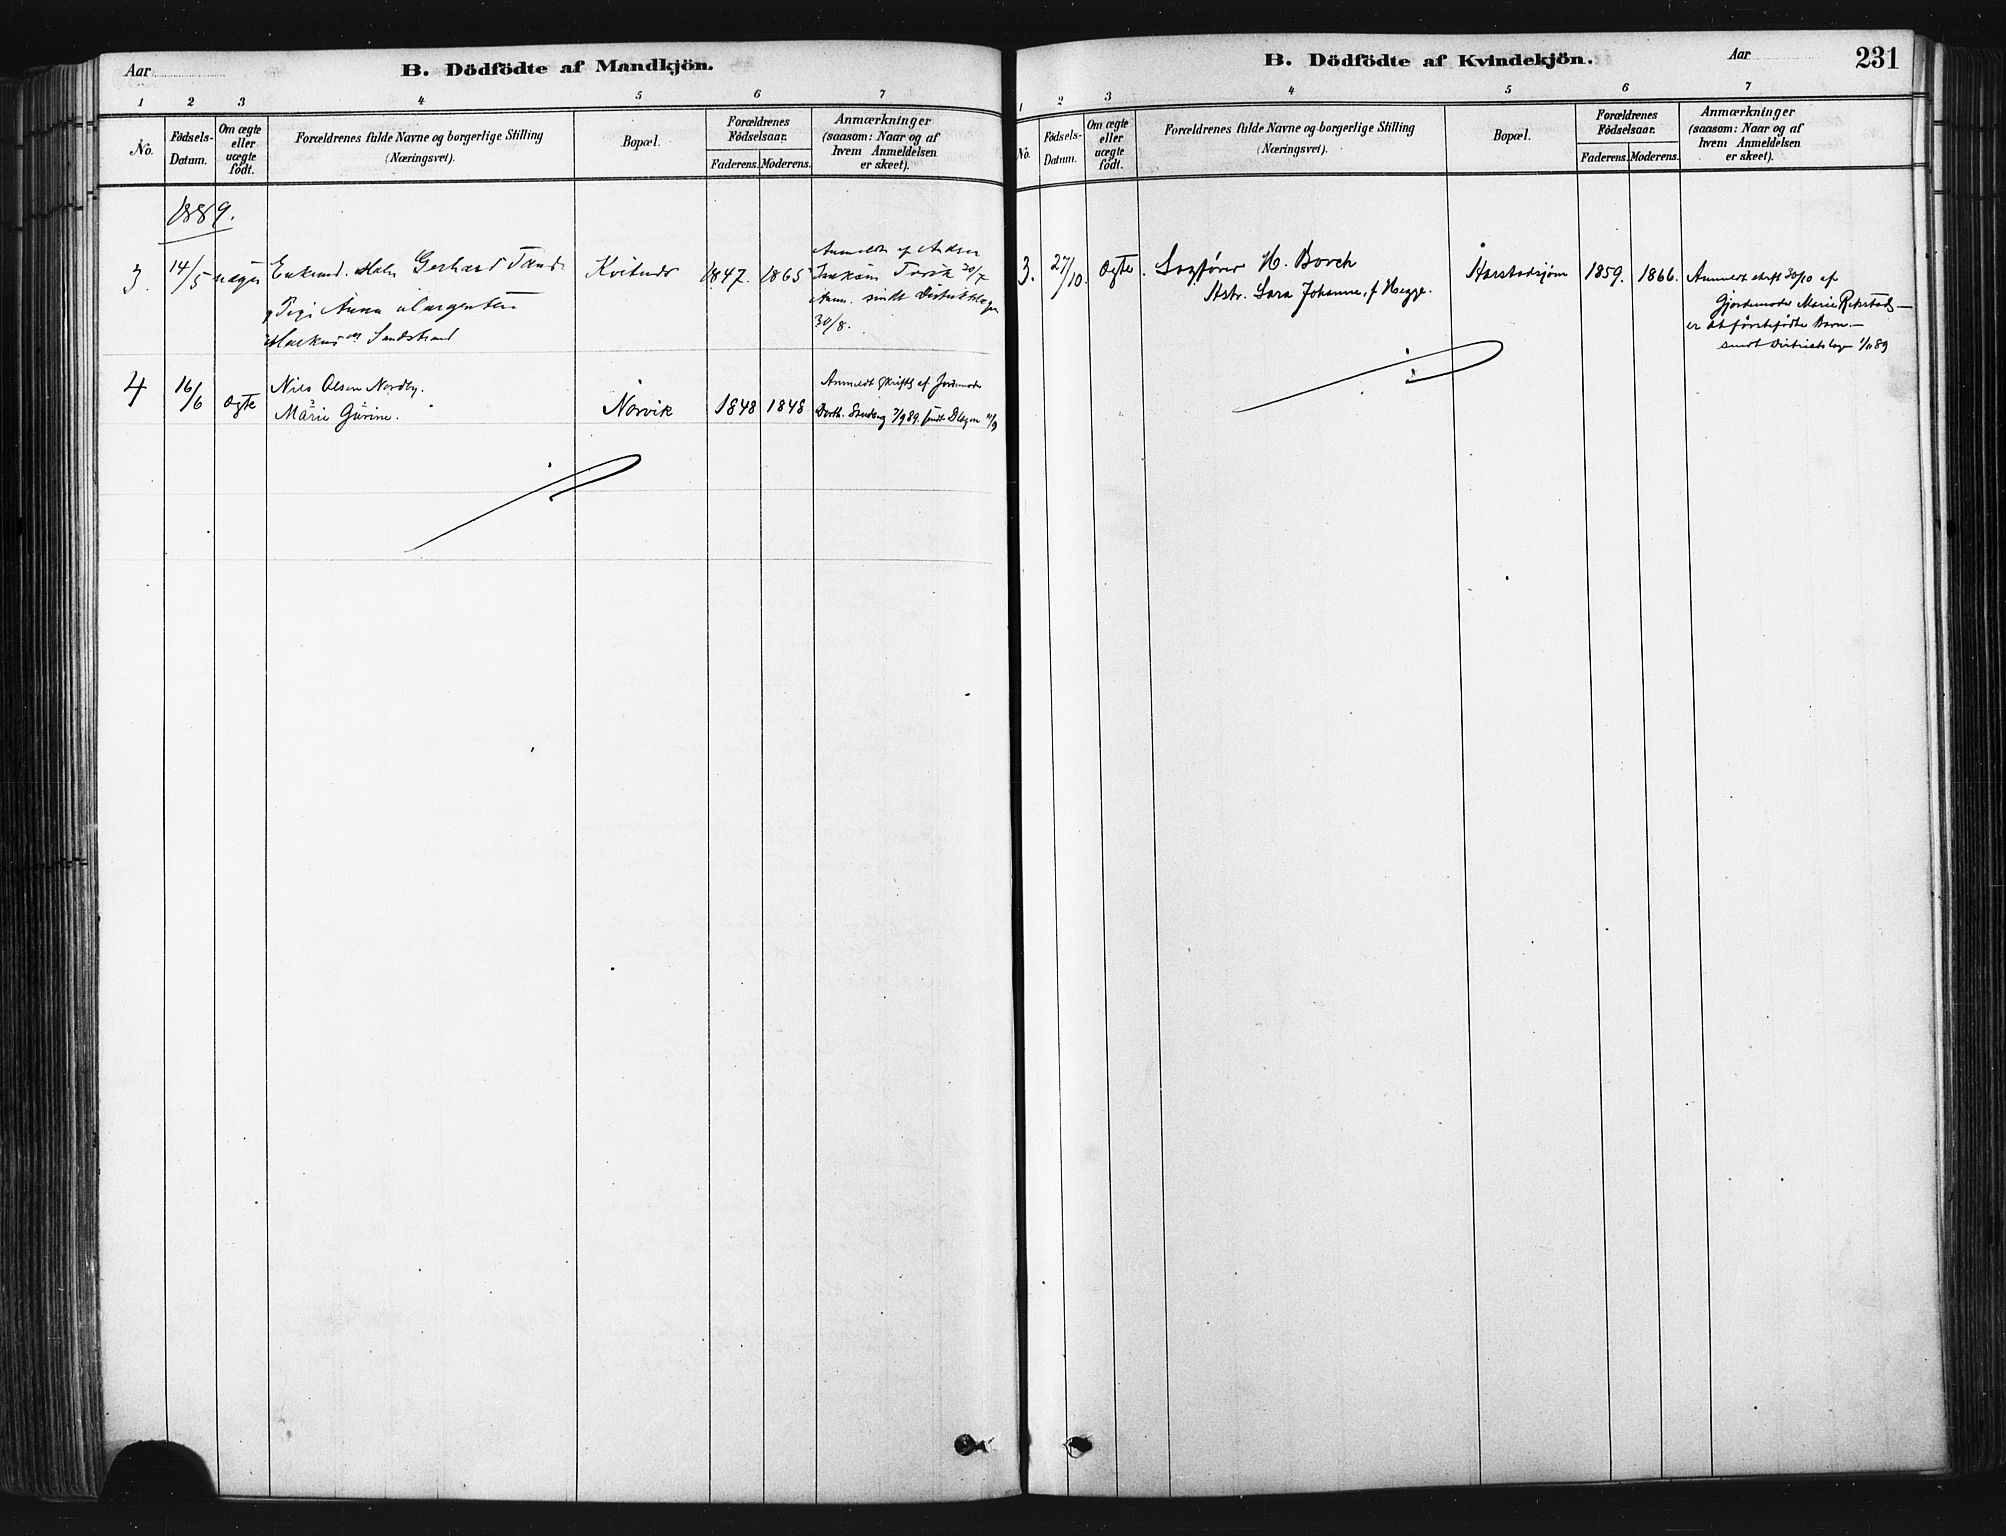 Aar
B. Dödfödte af Mandkjön.
1 2 3 4 5 6 7
No.
Födsels-Datum.
Om ægte eller uægte födt.
Forældrenes fulde Navne og borgerlige Stilling
(Næringsvei).
Bopæl.
Forældrenes Födselsaar.
Faderens. Moderens.
Anmærkninger
(saasom: Naar og af
hvem Anmeldelsen
er skeet).
1889.
3. 14/5 uægte Enkemd. Gerhard Kvitnes 1847. 1865 Anmeldt af Anders
Isaksen 20/7
Pige Anna Margrethe
30/8.
Markus Sandstrand
4 16/6 Ægte Nils Olsen Nordby.
Marie Gurine. Norvik 1848 1848 Anmeldt skriftl af Jordemoder
Dorth. Sandberg 7/9 89.
B. Dödfödte af Kvindekjön.
Aar
231
1 2 3 4 5 6 7
No.
Födsels-Datum.
Om ægte eller uægte födt.
Forældrenes fulde Navne og borgerlige Stilling
(Næringsvei).
Bopæl.
Forældrenes Födselsaar.
Faderens. Moderens.
Anmærkninger
(saasom: Naar og af
hvem Anmeldelsen
er skeet).
3. 27/10. Ægte. Sagfører H. Borch Harstadsjøen 1859. 1866. Anmeldt skrift 30/10 af
Hstr. Sara Johanne, f Hegge. Gjordemoder Marie Rekstad —
er et førstefødte Barn —
sendt Districtslægen 1/11 89